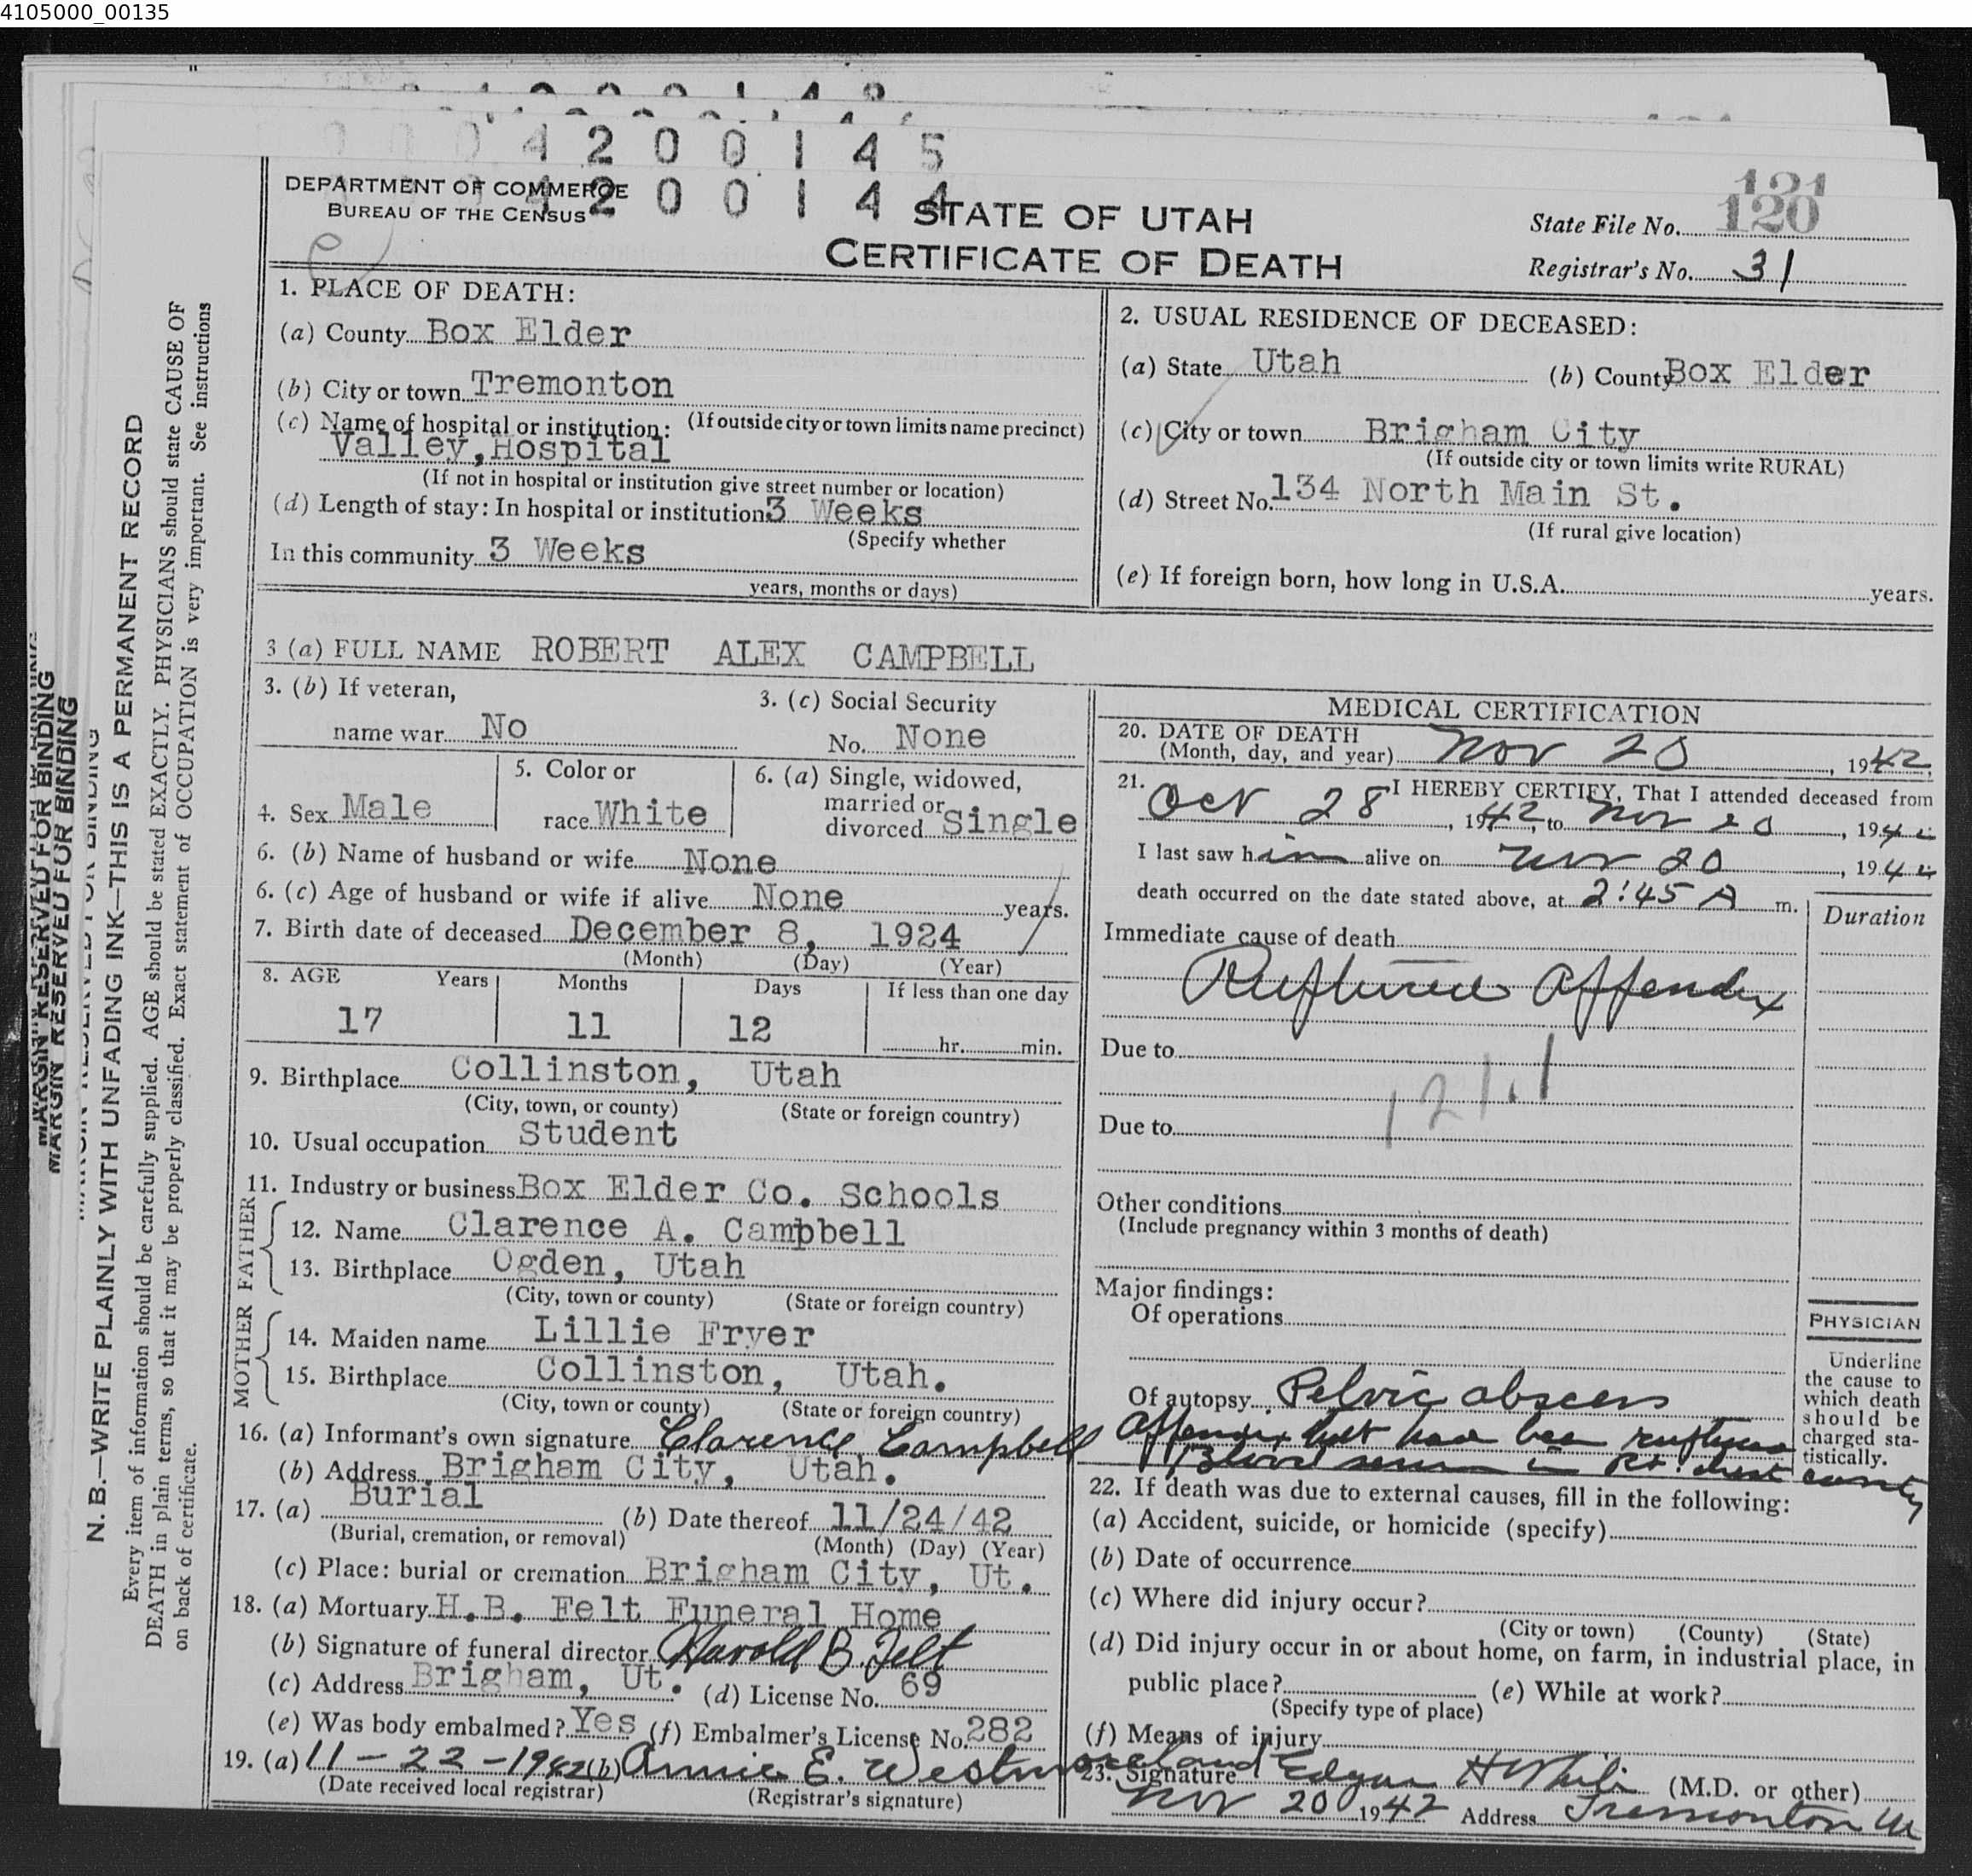 4105000_00135
4200145
4200144
DEPARTMENT OF COMMERCE
BUREAU OF THE CENSUS
STATE OF UTAH
CERTIFICATE OF DEATH
121
State File No. 120
Registrar's No. 31
MARGIN RESERVED FOR BINDING
N. B.—WRITE PLAINLY WITH UNFADING INK—THIS IS A PERMANENT RECORD
Every item of information should be carefully supplied. AGE should be stated EXACTLY. PHYSICIANS should state CAUSE OF
DEATH in plain terms, so that it may be properly classified. Exact statement of OCCUPATION is very important. See instructions
on back of certificate.
1. PLACE OF DEATH:
(a) County Box Elder
(b) City or town Tremonton
(c) Name of hospital or institution: (If outside city or town limits name precinct)
Valley, Hospital
(If not in hospital or institution give street number or location)
(d) Length of stay: In hospital or institution 3 Weeks
(Specify whether
In this community 3 Weeks
years, months or days)
2. USUAL RESIDENCE OF DECEASED:
(a) State Utah (b) County Box Elder
(c) City or town Brigham City
(If outside city or town limits write RURAL)
(d) Street No. 134 North Main St.
(If rural give location)
(e) If foreign born, how long in U.S.A. years.
3 (a) FULL NAME ROBERT ALEX CAMPBELL
3. (b) If veteran, 3. (c) Social Security
name war No No. None
4. Sex Male 5. Color or race White 6. (a) Single, widowed, married or divorced Single
6. (b) Name of husband or wife None
6. (c) Age of husband or wife if alive None years.
7. Birth date of deceased December 8, 1924
(Month) (Day) (Year)
8. AGE Years Months Days If less than one day
17 11 12 hr. min.
9. Birthplace Collinston, Utah
(City, town, or county) (State or foreign country)
10. Usual occupation Student
11. Industry or business Box Elder Co. Schools
FATHER
12. Name Clarence A. Campbell
13. Birthplace Ogden, Utah
(City, town or county) (State or foreign country)
MOTHER
14. Maiden name Lillie Fryer
15. Birthplace Collinston, Utah.
(City, town or county) (State or foreign country)
16. (a) Informant's own signature Clarence Campbell
(b) Address Brigham City, Utah.
17. (a) Burial (b) Date thereof 11/24/42
(Burial, cremation, or removal) (Month) (Day) (Year)
(c) Place: burial or cremation Brigham City, Ut.
18. (a) Mortuary H.B. Felt Funeral Home
(b) Signature of funeral director Harold B. Felt
(c) Address Brigham, Ut. (d) License No. 69
(e) Was body embalmed? Yes (f) Embalmer's License No. 282
19. (a) 11-22-1942 (b) Annie E. Westmoreland
(Date received local registrar) (Registrar's signature)
MEDICAL CERTIFICATION
20. DATE OF DEATH
(Month, day, and year) Nov 20, 1942
21. I HEREBY CERTIFY, That I attended deceased from
Oct 28, 1942, to Nov 20, 1942
I last saw him alive on Nov 20, 1942
death occurred on the date stated above, at 2:45 A m.
Duration
Immediate cause of death
Ruptured Appendix
Due to
121.1
Due to
Other conditions
(Include pregnancy within 3 months of death)
Major findings:
Of operations
PHYSICIAN
Underline
the cause to
which death
should be
charged sta-
tistically.
Of autopsy Pelvic abscess
Appendix had been ruptured
in Rt. chest cavity
22. If death was due to external causes, fill in the following:
(a) Accident, suicide, or homicide (specify)
(b) Date of occurrence
(c) Where did injury occur?
(City or town) (County) (State)
(d) Did injury occur in or about home, on farm, in industrial place, in
public place? (e) While at work?
(Specify type of place)
(f) Means of injury
23. Signature Edgar H White (M.D. or other)
Nov 20 1942 Address Tremonton